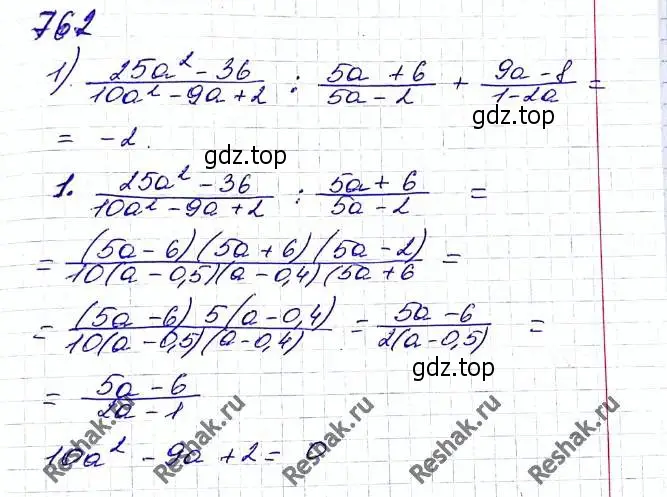 762
1). \frac{25a^2 - 36}{10a^2 - 9a + 2} : \frac{5a + 6}{5a - 2} + \frac{9a - 8}{1 - 2a} =
= -2.
gdz.top
1. \frac{25a^2 - 36}{10a^2 - 9a + 2} : \frac{5a + 6}{5a - 2} =
= \frac{(5a - 6)(5a + 6)(5a - 2)}{10(a - 0,5)(a - 0,4)(5a + 6} =
= \frac{(5a - 6) 5(a - 0,4)}{10(a - 0,5)(a - 0,4)} = \frac{5a - 6}{2(a - 0,5)} =
gdz.top
= \frac{5a - 6}{2a - 1}
10a^2 - 9a + 2 = 0
Reshak.ru
Reshak.ru
Reshak.ru
Reshak.ru